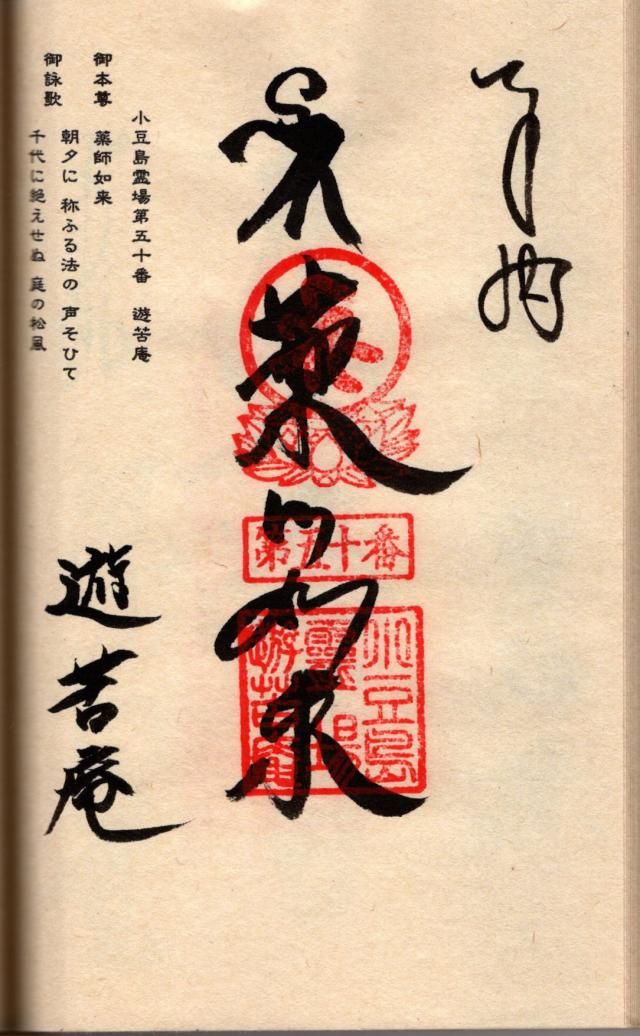 奉納
薬師如来
第五十番
小豆島
霊場
遊苦庵
小豆島霊場第五十番 遊苦庵
御本尊 薬師如来
御詠歌 朝夕に 称ふる法の 声そひて
千代に絶えせぬ 庭の松風
遊苦庵